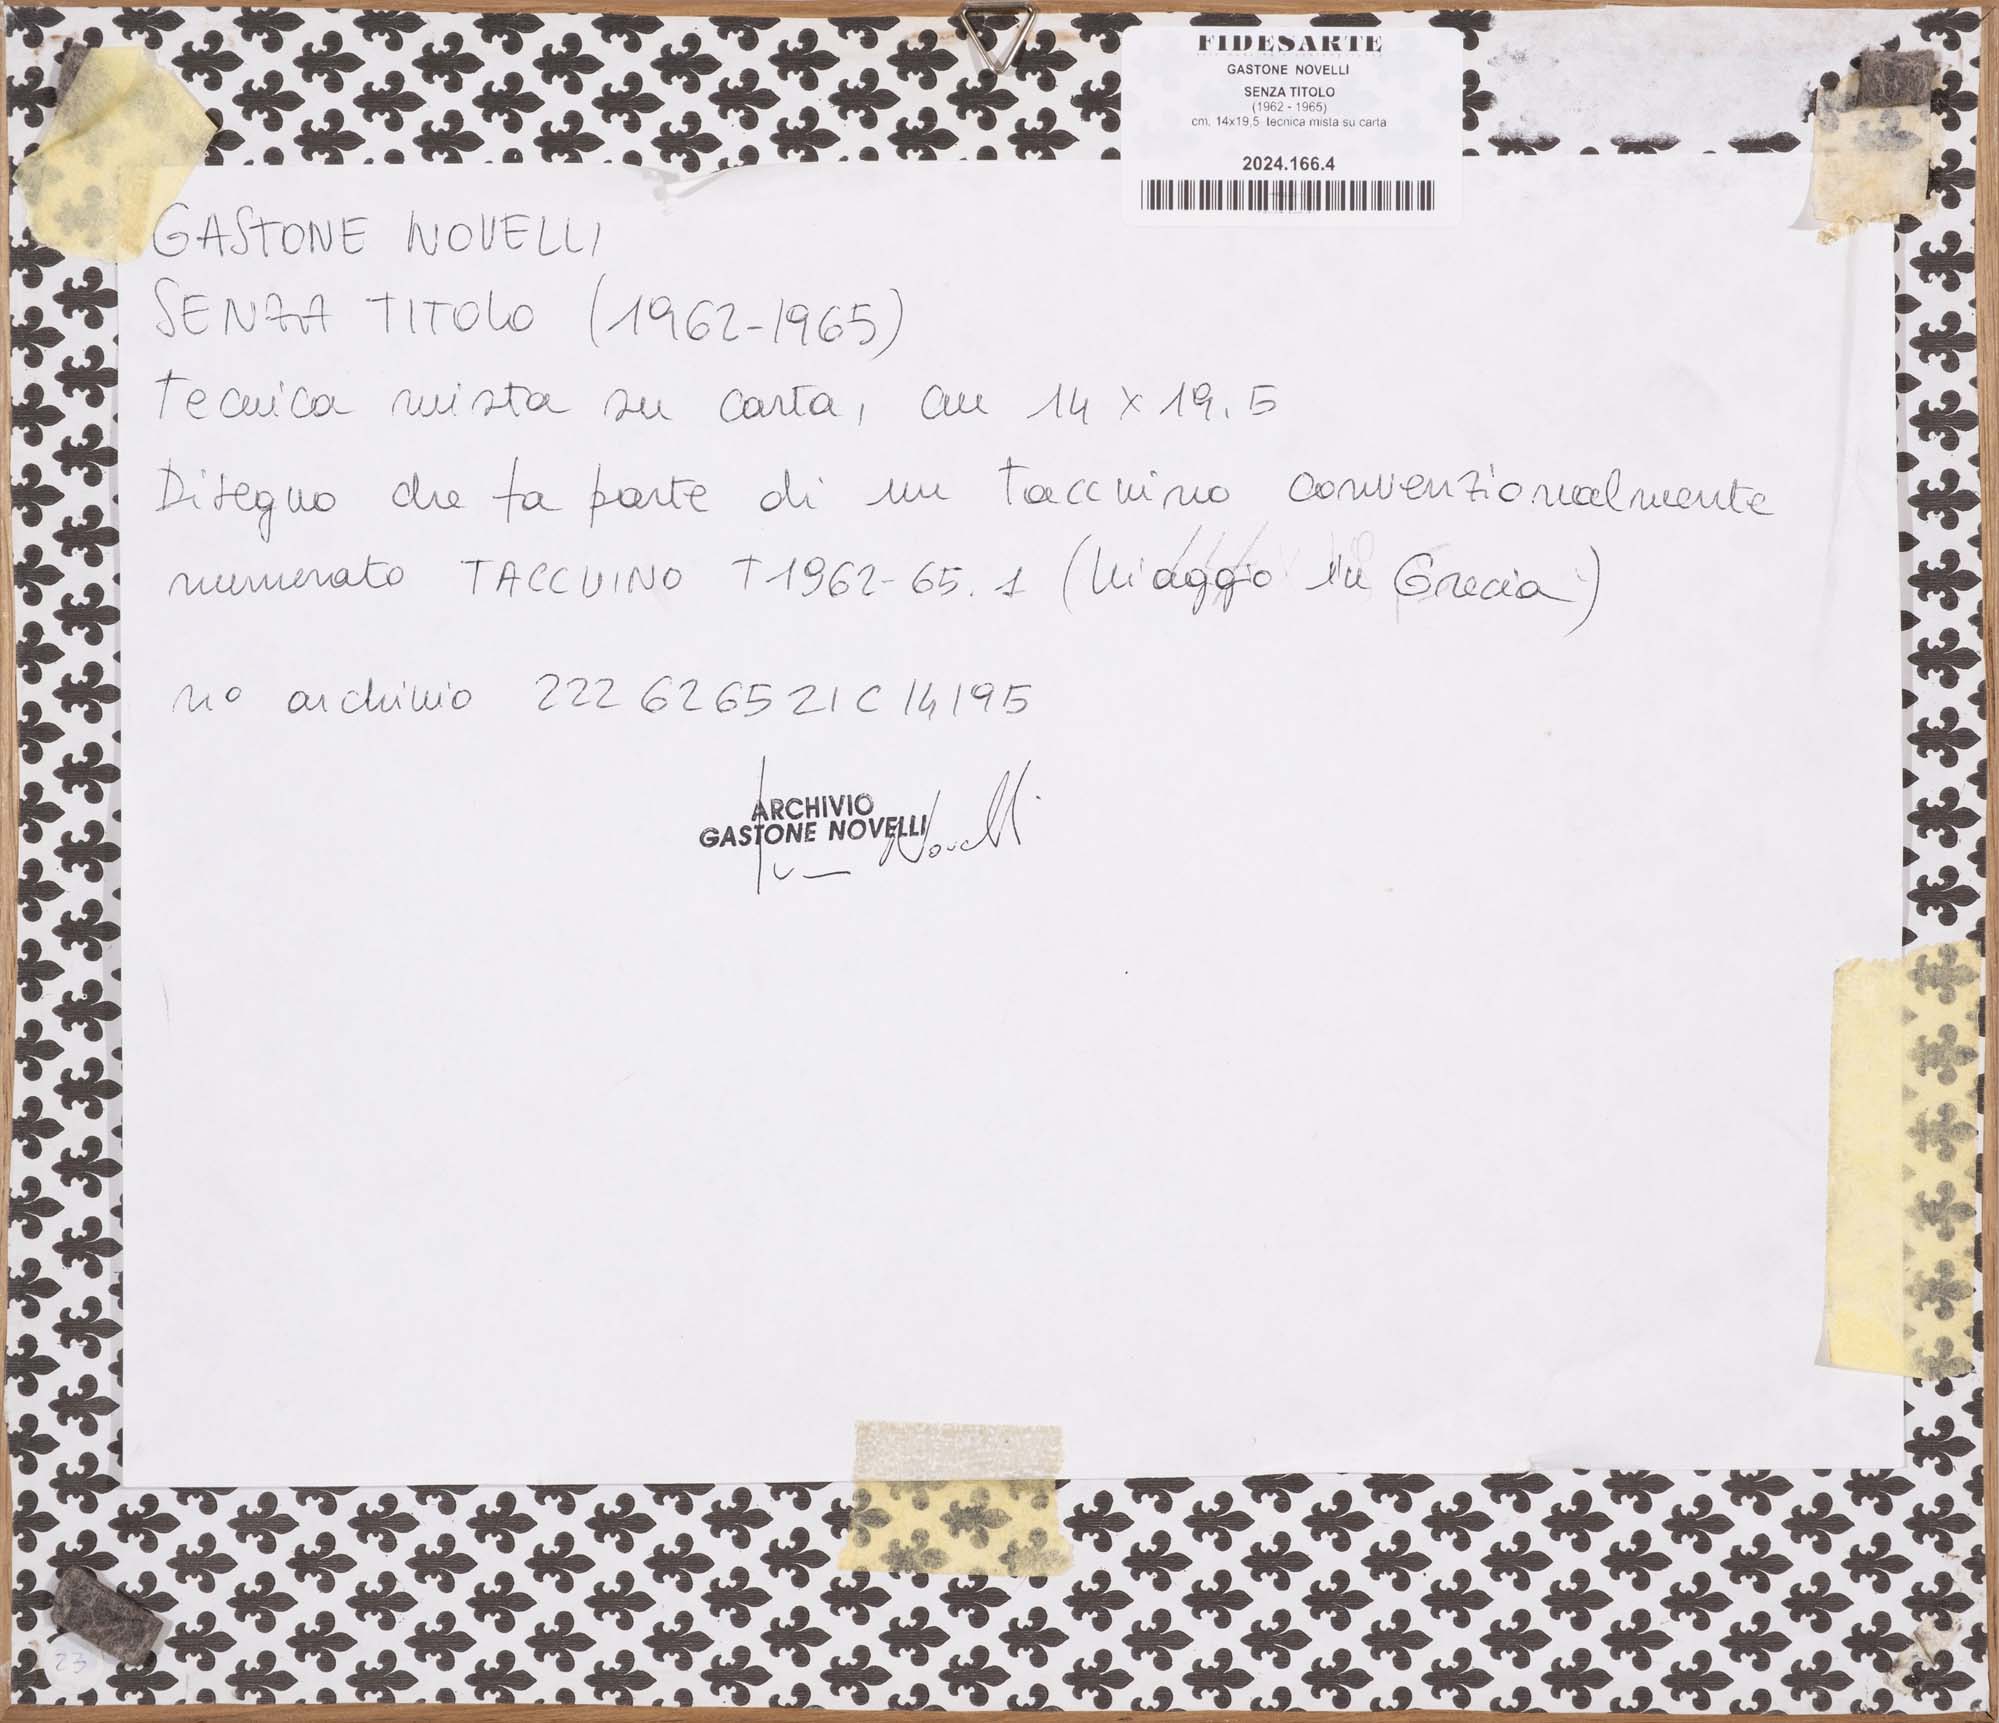 FIDESARTE
GASTONE NOVELLI
SENZA TITOLO
(1962 - 1965)
cm. 14x19,5 tecnica mista su carta
2024.166.4
GASTONE NOVELLI
SENZA TITOLO (1962-1965)
Tecnica mista su carta, cm 14 x 19.5
Disegno che fa parte di un Taccuino convenzionalmente
numerato TACCUINO T1962-65.1 (Viaggio in Grecia)
n° archivio 222 62 65 21 C 14195
ARCHIVIO
GASTONE NOVELLI
Novelli
23